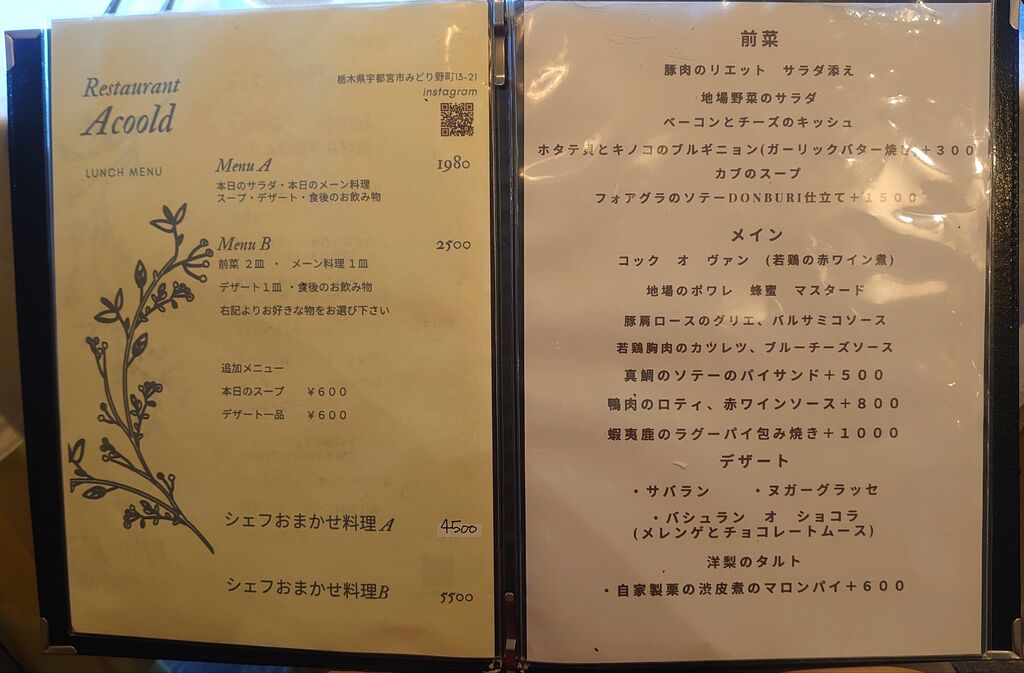 Restaurant
Acoold
栃木県宇都宮市みどり野町13-21
instagram
LUNCH MENU
Menu A 1980
本日のサラダ・本日のメーン料理
スープ・デザート・食後のお飲み物
Menu B 2500
前菜 2皿 ・ メーン料理 1皿
デザート1皿 ・食後のお飲み物
右記よりお好きな物をお選び下さい
追加メニュー
本日のスープ ￥600
デザート一品 ￥600
シェフおまかせ料理 A 4500
シェフおまかせ料理B 5500
前菜
豚肉のリエット サラダ添え
地場野菜のサラダ
ベーコンとチーズのキッシュ
ホタテ貝とキノコのブルギニョン(ガーリックバター焼き)+300
カブのスープ
フォアグラのソテーDONBURI仕立て+1500
メイン
コック オ ヴァン (若鶏の赤ワイン煮)
地場のポワレ 蜂蜜 マスタード
豚肩ロースのグリエ、バルサミコソース
若鶏胸肉のカツレツ、ブルーチーズソース
真鯛のソテーのパイサンド+500
鴨肉のロティ、赤ワインソース+800
蝦夷鹿のラグーパイ包み焼き+1000
デザート
・サバラン ・ヌガーグラッセ
・バシュラン オ ショコラ
(メレンゲとチョコレートムース)
洋梨のタルト
・自家製栗の渋皮煮のマロンパイ+600